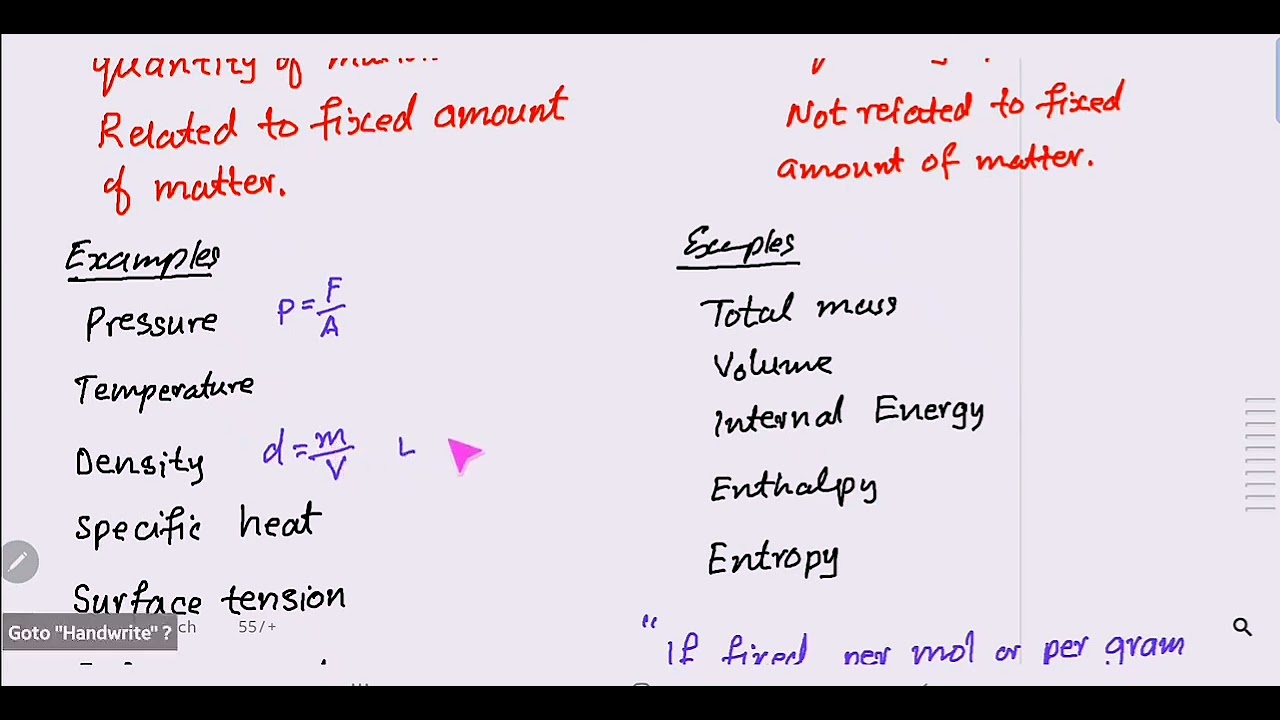 quantity of
Related to fixed amount
of matter.
Examples
Pressure P = F/A
Temperature
Density d = m/V
Specific heat
Surface tension
Not related to fixed
amount of matter.
Examples
Total mass
Volume
Internal Energy
Enthalpy
Entropy
"If fixed per mol or per gram
Goto "Handwrite" ?
ch 55/+